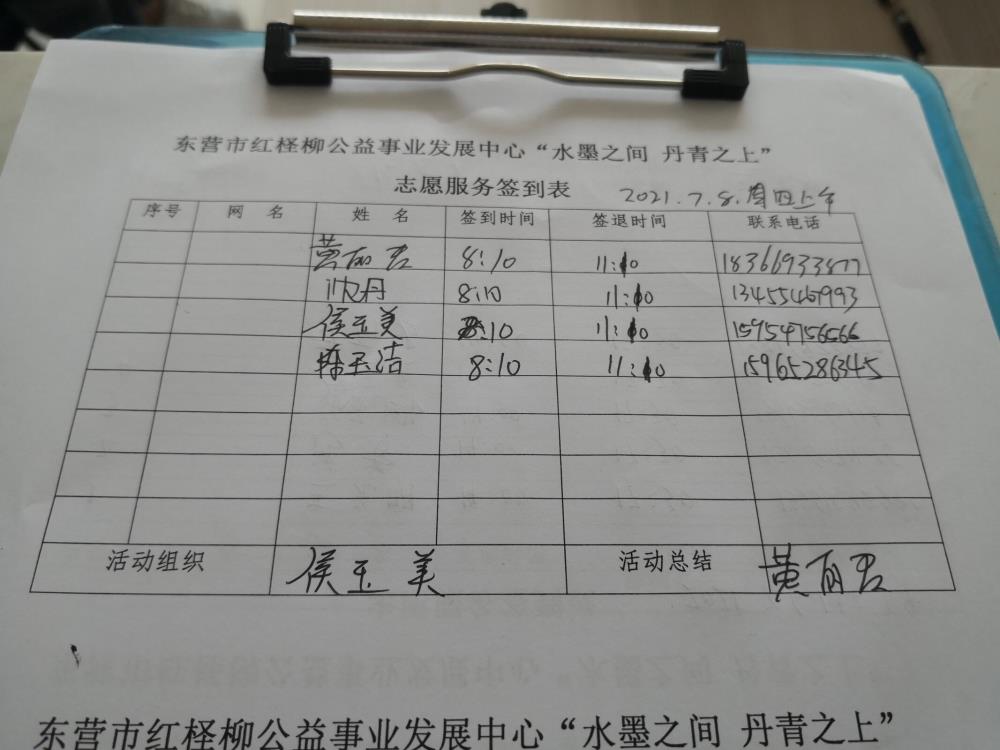 东营市红柽柳公益事业发展中心“水墨之间 丹青之上”
志愿服务签到表 2021.7.8.周四上午
序号 网 名 姓 名 签到时间 签退时间 联系电话
黄丽君 8:10 11:10 18366933877
沈丹 8:10 11:10 13455467993
侯玉美 8:10 11:10 15954756566
陈玉洁 8:10 11:10 15965286345
活动组织 侯玉美 活动总结 黄丽君
东营市红柽柳公益事业发展中心“水墨之间 丹青之上”